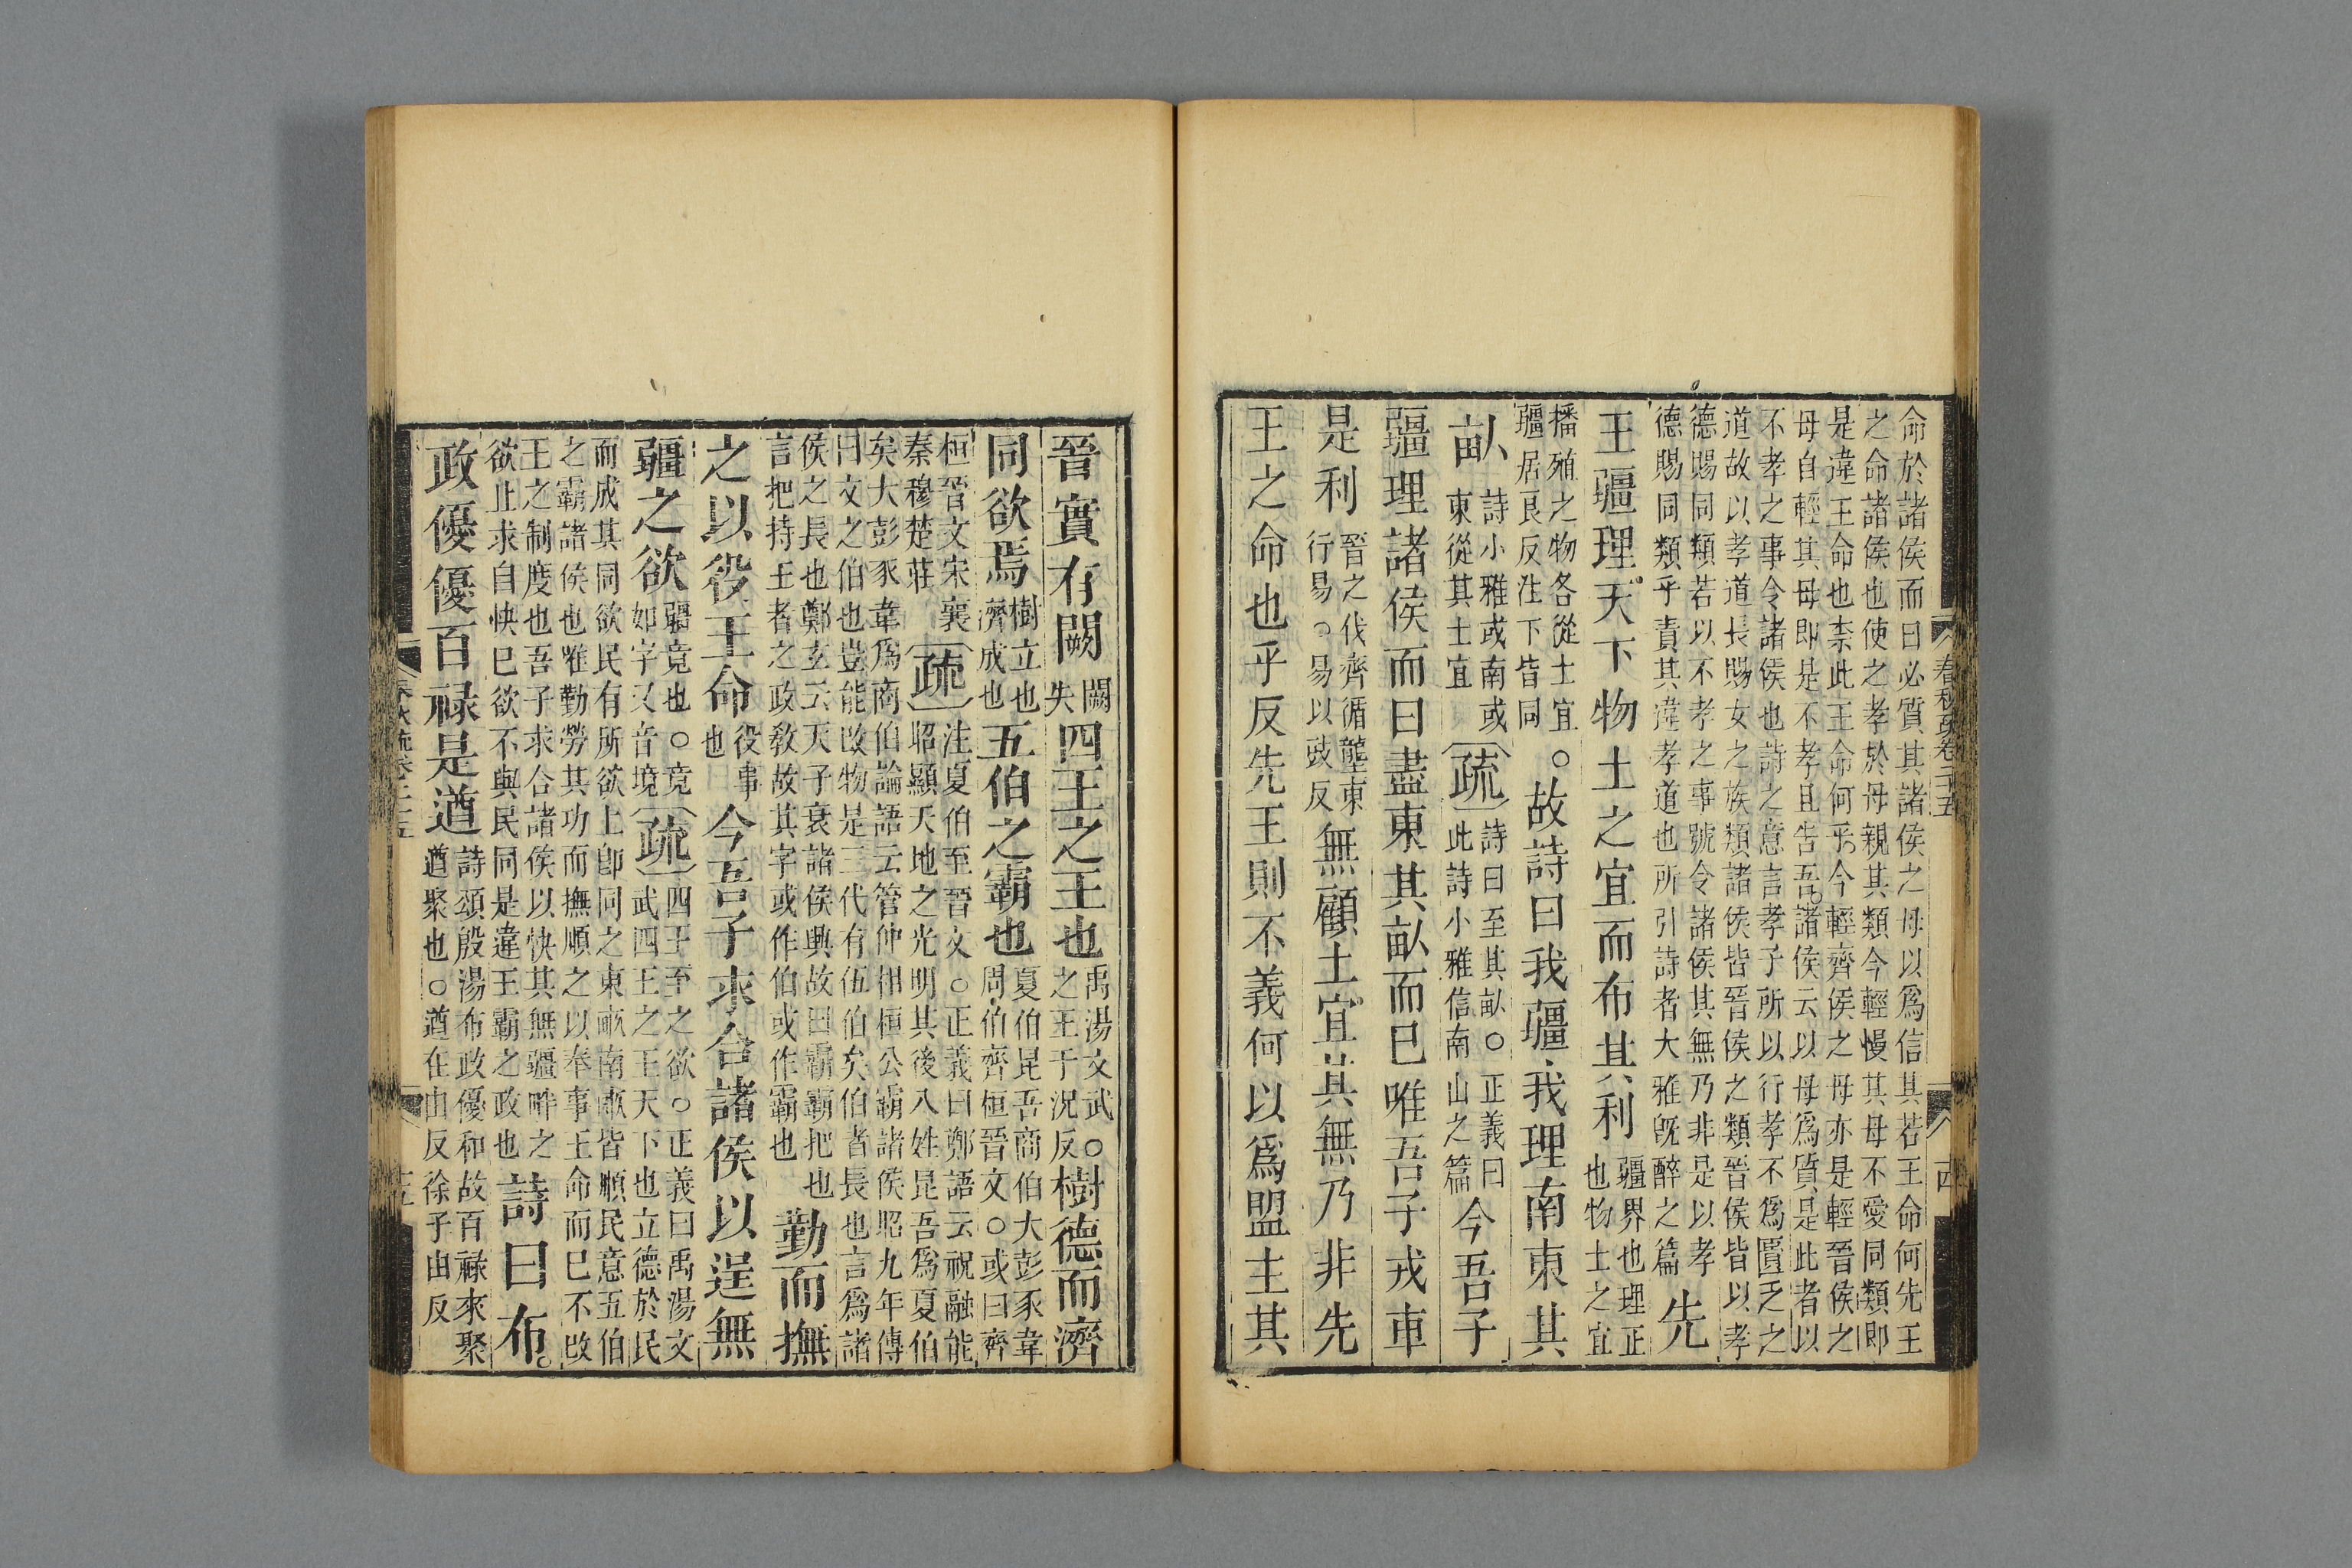 春秋疏卷二十五 四
命於諸侯而曰必質其諸侯之母以爲信其若王命何先王
之命諸侯也使之孝於母親其類今輕慢其母不愛同類即
是違王命也柰此王命何乎今輕齊侯之母亦是輕晉侯之
母自輕其母即是不孝且告吾諸侯云以母爲質是此者以
不孝之事令諸侯也詩之意言孝子所以行孝不爲匱乏之
道故以孝道長賜女之族類諸侯皆晉侯之類晉侯皆以孝
德賜同類若以不孝之事號令諸侯其無乃非是以孝
德賜同類乎責其違孝道也所引詩者大雅旣醉之篇 先
王疆理天下物土之宜而布其利 疆界也理正也物土之宜
播殖之物各從土宜○疆居良反注下皆同 故詩曰我疆我理南東其
畝 詩小雅或南或東從其土宜 疏 詩曰至其畝○正義曰此詩小雅信南山之篇 今吾子
疆理諸侯而曰盡東其畝而巳唯吾子戎車
是利 晉之伐齊循壟東行易○易以豉反 無顧土宜其無乃非先
王之命也乎反先王則不義何以爲盟主其
晉實有闕 闕失 四王之王也 禹湯文武○之王于況反 樹德而濟
同欲焉 樹立也濟成也 五伯之霸也 夏伯昆吾商伯大彭豕韋周伯齊桓晉文○或曰齊
桓晉文宋襄秦穆楚莊 疏 注夏伯至晉文○正義曰鄭語云祝融能
昭顯天地之光明其後八姓昆吾爲夏伯
矣大彭豕韋爲商伯論語云管仲相桓公霸諸侯昭九年傳
曰文之伯也豈能改物是三代有伍伯矣伯者長也言爲諸
侯之長也鄭玄云天子衰諸侯興故曰霸霸把也
言把持王者之政敎故其字或作伯或作霸也 勤而撫
之以役王命 役事也 今吾子求合諸侯以逞無
疆之欲 疆竟也○竟如字又音境 疏 四王至之欲○正義曰禹湯文
武四王之王天下也立德於民
而成其同欲民有所欲上卽同之東畝南畝皆順民意五伯
之霸諸侯也唯勤勞其功而撫順之以奉事王命而巳不改
王之制度也吾子求合諸侯以快其無疆畔之
欲止求自快巳欲不與民同是違王霸之政也 詩曰布
政優優百祿是遒 詩頌殷湯布政優和故百祿來聚
遒聚也○遒在由反徐子由反